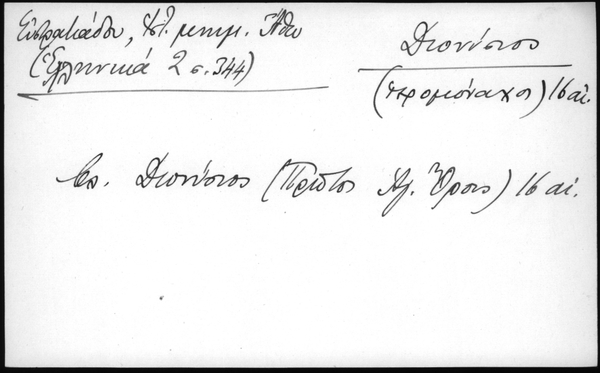 Εὐστρατιάδου, Ἱστ. μνημ. Ἄθω
(Ἑλληνικά 2 σ. 344)
Διονύσιος
(ἱερομόναχος) 16 αἰ.
βλ. Διονύσιος (Πρῶτος Ἁγ. Ὄρους) 16 αἰ.